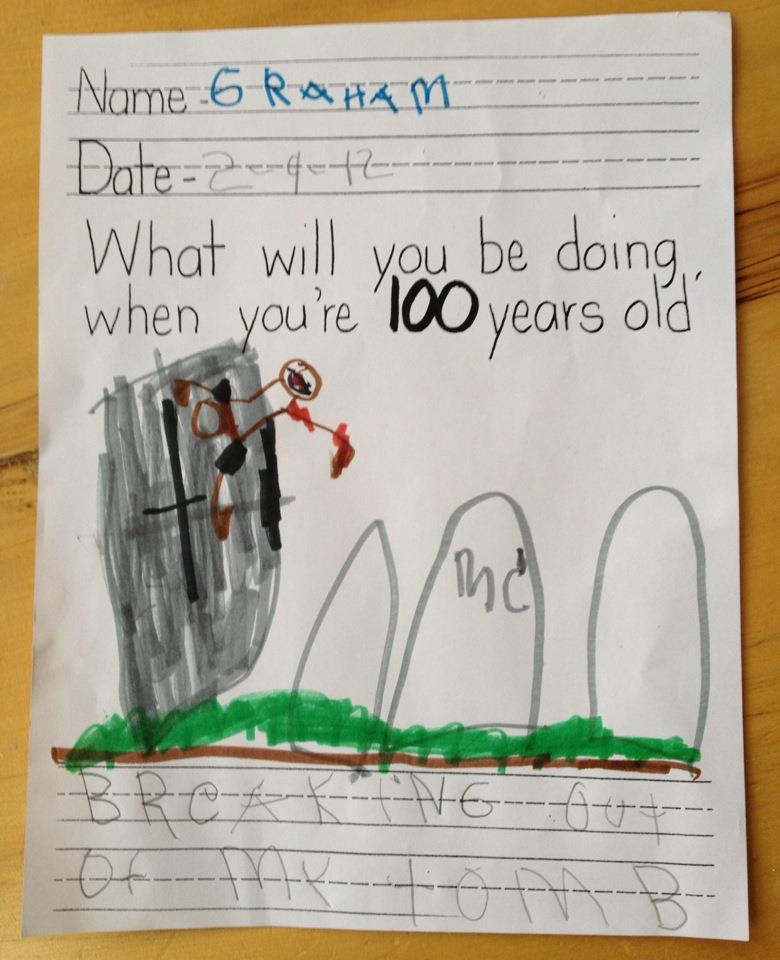 Name - GRAHAM
Date - 2-9-12
What will you be doing,
when you're 100 years old
BREAKING OUT
OF MY TOMB